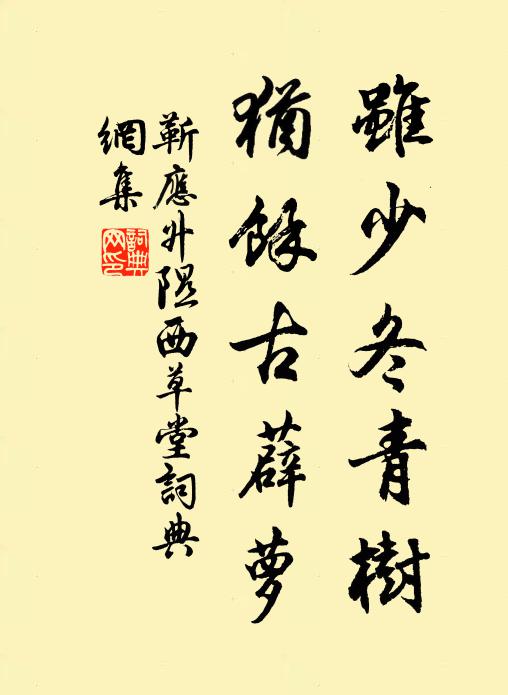 雖少冬青樹
猶餘古薜蘿
靳應升隰西草堂詞典
網集
詞典網印